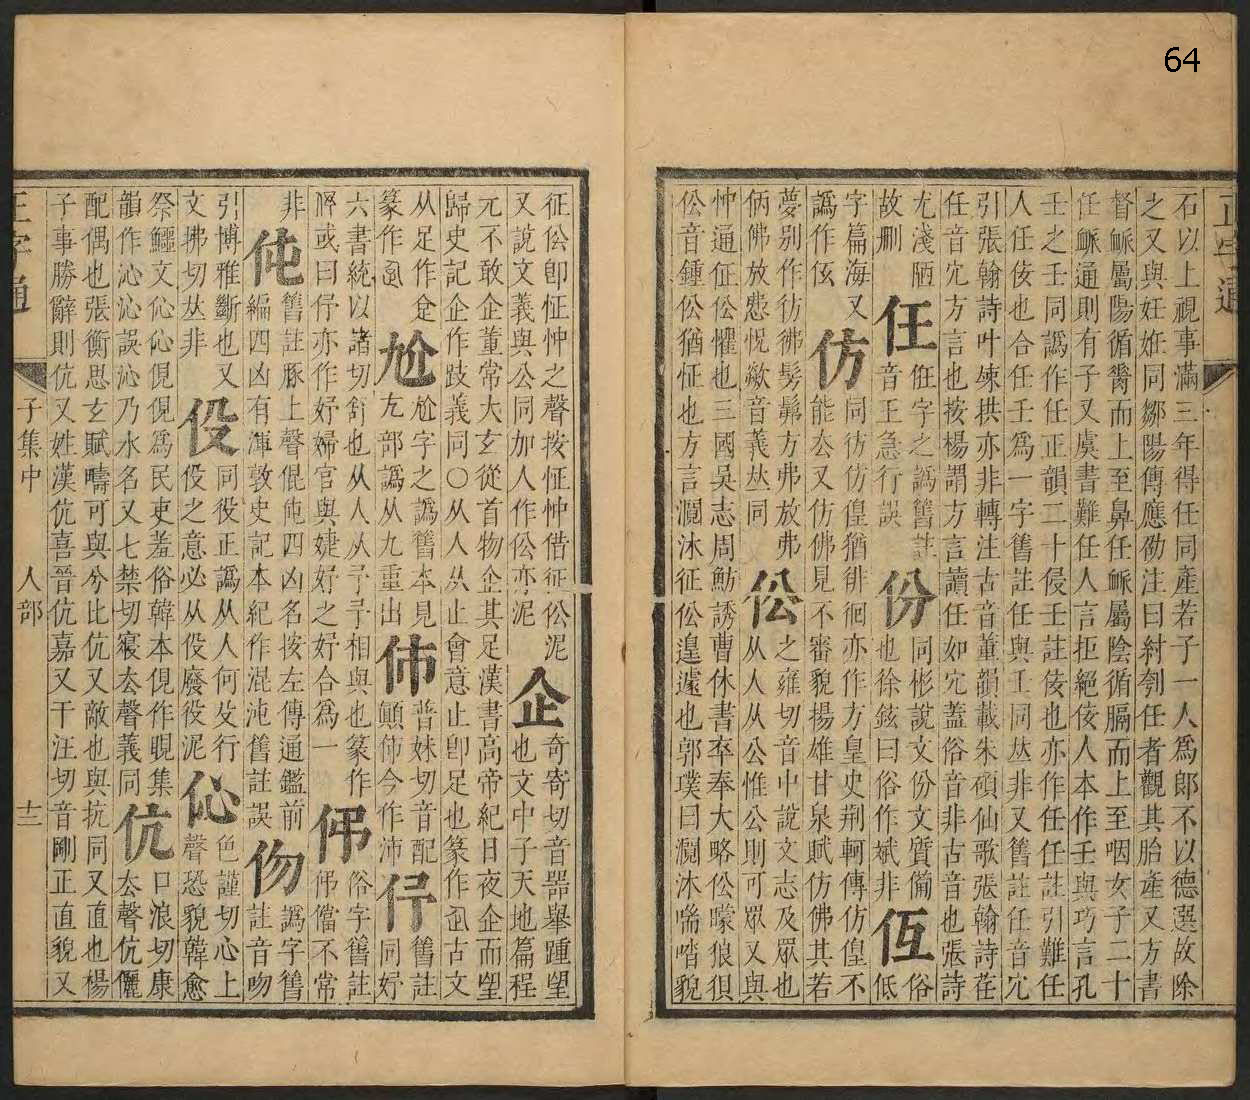 64
正字通
石以上視事滿三年得任同產若子一人爲郎不以德選故除
之又與妊姙同鄒陽傳應劭注曰紂刳任者觀其胎產又方書
督脈屬陽循膂而上至鼻任脈屬陰循膈而上至咽女子二十
任脈通則有子又虞書難任人言拒絕佞人本作壬與巧言孔
壬之壬同譌作任正韻二十侵壬註佞也亦作任任註引難任
人任佞也合任壬爲一字舊註任與壬同𠀤非又舊註任音宂
引張翰詩叶竦拱亦非轉注古音董韻載朱碩仙歌張翰詩荏
任音宂方言也按楊謂方言讀任如宂蓋俗音非古音也張詩
尤淺陋
故刪
任
俇字之譌舊註
音王急行誤
份
同彬說文份文質備
也徐鉉曰俗作斌非
仾
俗
低
字篇海又
譌作伭
仿
同彷仿偟猶徘徊亦作方皇史荆軻傳仿偟不
能去又仿佛見不審貌揚雄甘泉賦仿佛其若
夢别作彷彿髣髴方弗放弗
俩佛放悲怳歘音義𠀤同
伀
之雍切音中說文志及眾也
从人从公惟公則可眾又與
忡通征伀懼也三國吳志周魴誘曹休書奉奉大略伀矇狼狽
伀音鍾伀猶怔也方言㵍沐征伀遑遽也郭璞曰㵍沐喘喈貌
征伀卽怔忡之聲按怔忡借征伀泥
又說文義與公同加人作伀亦泥
企
奇寄切音器舉踵望
也文中子天地篇程
元不敢企董常大玄從首物企其足漢書高帝紀日夜企而望
歸史記企作跂義同〇从人从止會意止卽足也篆作𠈮古文
从足作𧿁
篆作𠈮
尬
尬字之譌舊本見
尢部譌从九重出
伂
普妹切音配
顚伂今作沛
伃
舊註
同好
六書統以諸切舒也从人从予予相與也篆作
㑜或曰伃亦作妤婦官與婕妤之妤合爲一
伄
俗字舊註
伄儅不常
非
伅
舊註豚上聲倱伅四凶名按左傳通鑑前
編四凶有渾敦史記本紀作混沌舊註誤
伆
譌字舊
註音吻
引博雅斷也又
文拂切𠀤非
伇
同役正譌从人何殳行
役之意必从役廢伇泥
伈
色謹切心上
聲恐貌韓愈
祭鱷文伈伈俔俔爲民吏羞俗韓本俔作睍集
韻作沁沁誤沁乃水名又七禁切寑去聲義同
伉
口浪切康
去聲伉儷
配偶也張衡思玄賦疇可與兮比伉又敵也與抗同又直也楊
子事勝辭則伉又姓漢伉喜晉伉嘉又干汪切音剛正直貌又
正字通
子集中
人部
十二